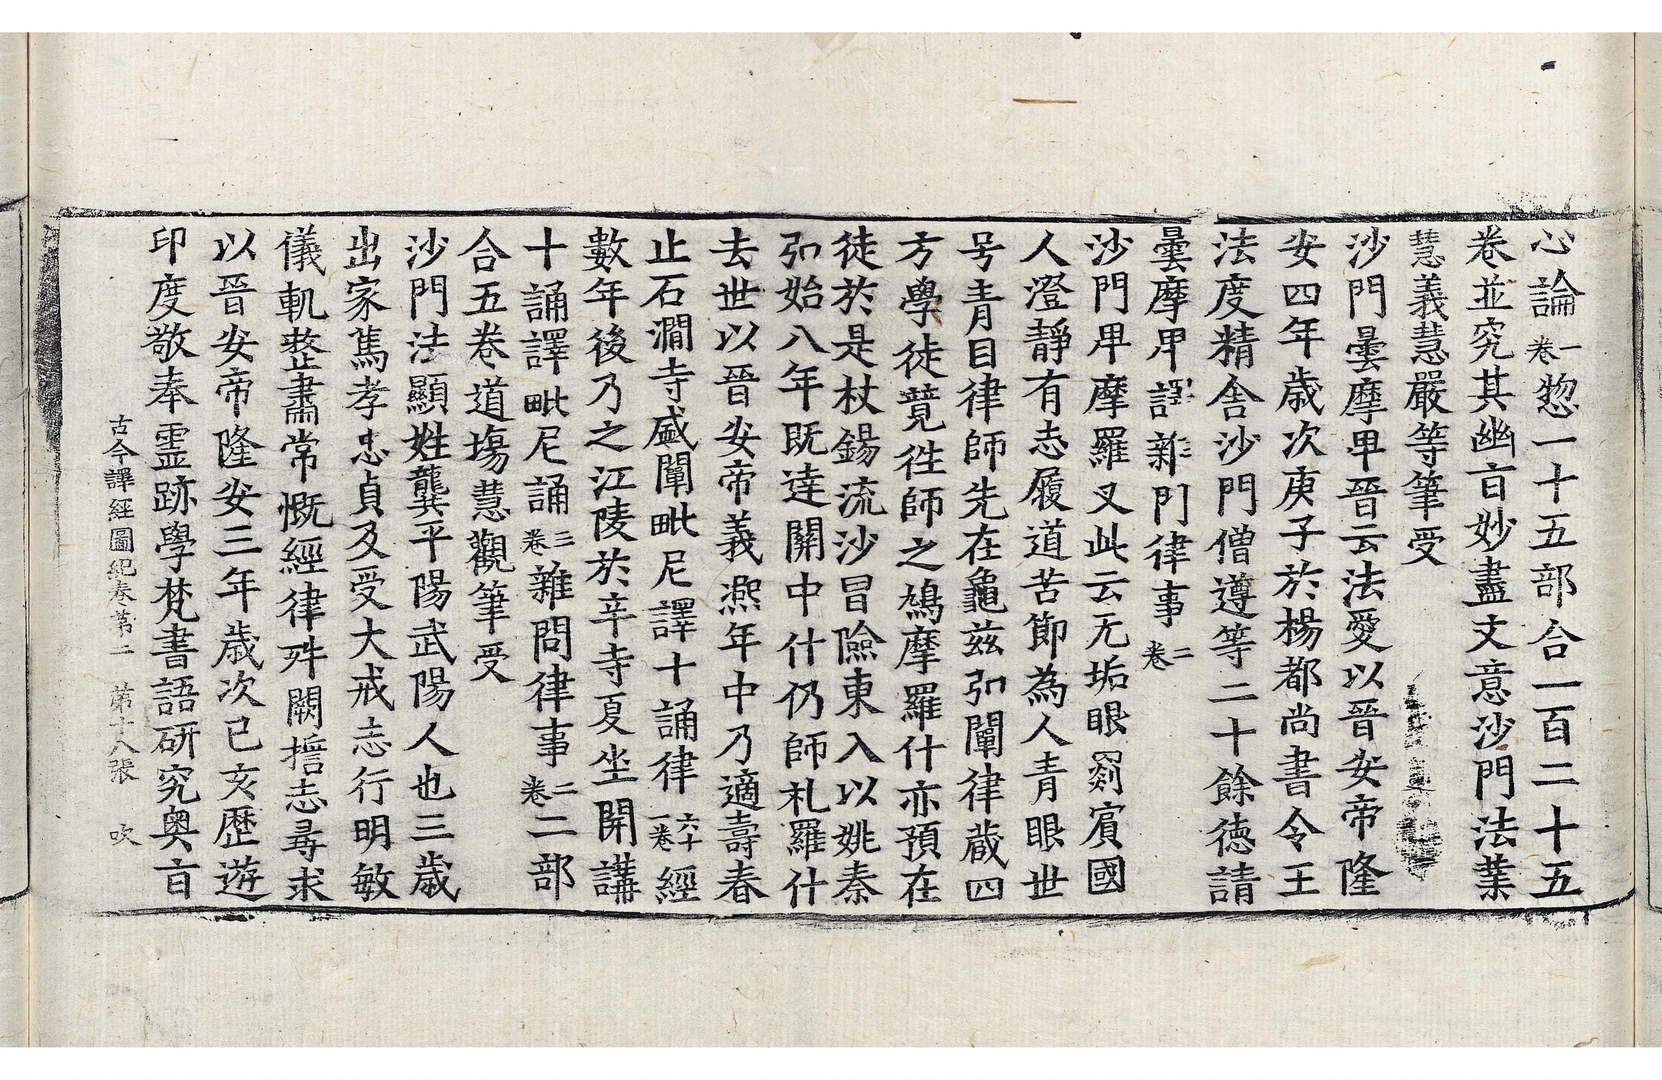 心論一卷惣一十五部合一百二十五
卷並究其幽旨妙盡文意沙門法業
慧義慧嚴等筆受
沙門曇摩卑晉云法愛以晉安帝隆
安四年歲次庚子於楊都尚書令王
法度精舍沙門僧遵等二十餘德請
曇摩卑譯雜門律事二卷
沙門卑摩羅叉此云无垢眼罽賓國
人澄靜有志履道苦節為人青眼世
号青目律師先在龜茲弘闡律藏四
方學徒競往師之鳩摩羅什亦預在
徒於是杖錫流沙冒險東入以姚秦
弘始八年既達關中什仍師礼羅什
去世以晉安帝義熙年中乃適壽春
止石澗寺盛闡毗尼譯十誦律六十一卷經
數年後乃之江陵於辛寺夏坐開講
十誦譯毗尼誦三卷雜問律事二卷二部
合五卷道場慧觀筆受
沙門法顯姓龔平陽武陽人也三歲
出家篤孝忠貞及受大戒志行明敏
儀軌整肅常慨經律舛闕搘志尋求
以晉安帝隆安三年歲次己亥歷遊
印度敬奉靈跡學梵書語研究奧旨
古今譯經圖紀卷第二　第十八張　吹